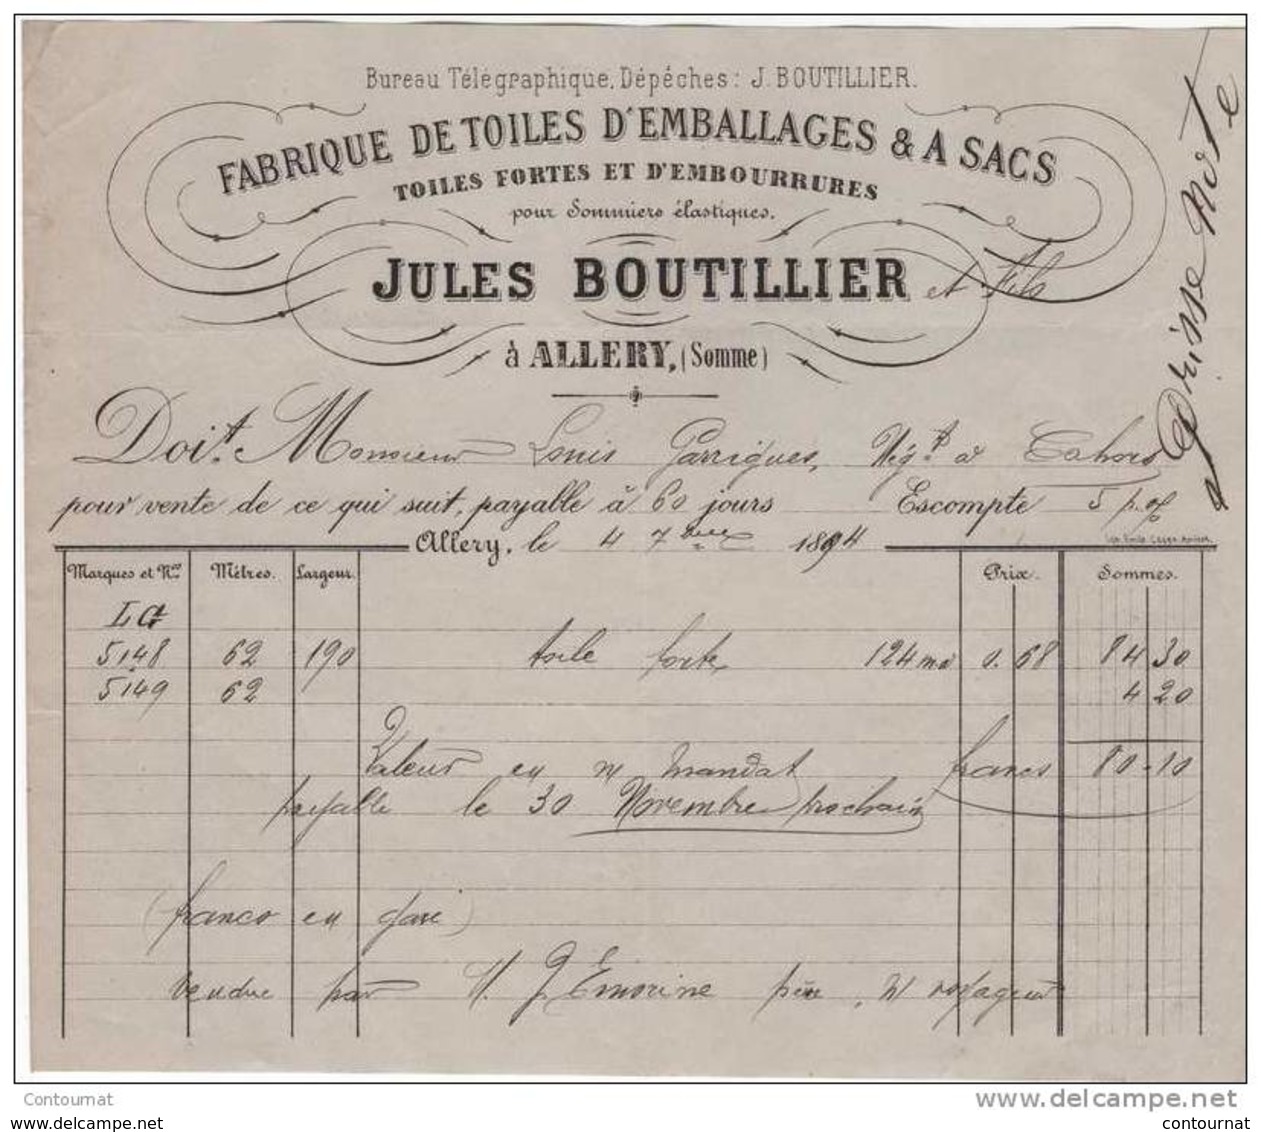 Bureau Télégraphique, Dépêches: J. BOUTILLIER.
FABRIQUE DE TOILES D'EMBALLAGES & A SACS
TOILES FORTES ET D'EMBOURRURES
pour Sommiers élastiques.
JULES BOUTILLIER et Fils
à ALLERY, (Somme)
Grisse Morte
Doit Monsieur Louis Garrigues, Négt a Cahors
pour vente de ce qui suit, payable à 60 jours Escompte 5 p. %
Allery, le 4 7bre 1894
Marques et Nos Mètres. Largeur. Prix. Sommes.
LG
5148 62 190 toile forte 124 m 0. 68 84 30
5149 62 4 20
Valeur en m/ mandat francs 80.10
payable le 30 Novembre prochain
(franco en gare)
Vendue par M. J. Emorine père, n/ voyageur
Contournat
www.delcampe.net
contournat